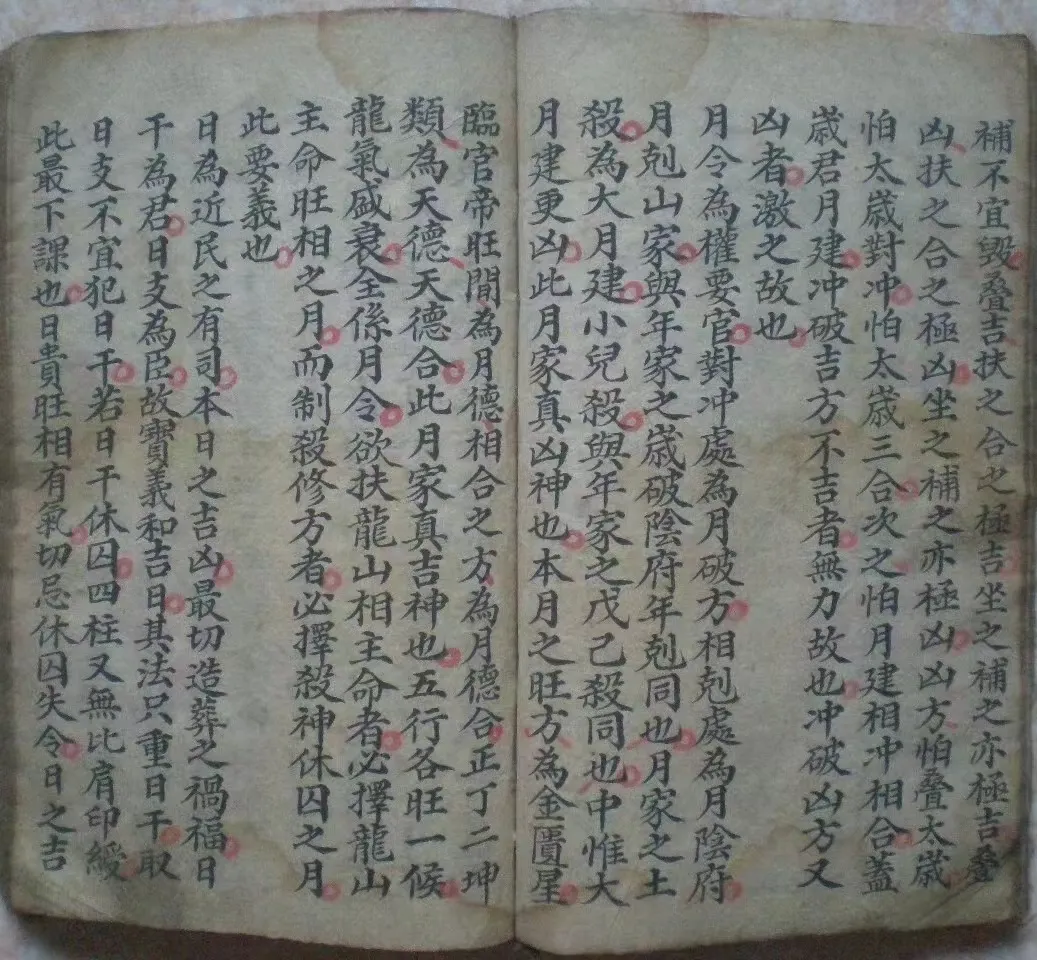 補不宜毀叠吉扶之合之極吉坐之補之亦極吉叠
凶扶之合之極凶坐之補之亦極凶凶方怕叠太歲
怕太歲對冲怕太歲三合次之怕月建相冲相合蓋
歲君月建冲破吉方不吉者無力故也冲破凶方又
凶者激之故也
月令為權要官對冲處為月破方相剋處為月陰府
月剋山家與年家之歲破陰府年剋同也月家之土
殺為大月建小兒殺與年家之戊己殺同也中惟大
月建更凶此月家真凶神也本月之旺方為金匱星
臨官帝旺間為月德相合之方為月德合正丁二坤
類為天德天德合此月家真吉神也五行各旺一候
龍氣盛衰全係月令欲扶龍山相主命者必擇龍山
主命旺相之月而制殺修方者必擇殺神休囚之月
此要義也
日為近民之有司本日之吉凶最切造葬之禍福日
干為君日支為臣故寶義和吉日其法只重日干取
日支不宜犯日干若日干休囚四柱又無比肩印綬
此最下課也日貴旺相有氣切忌休囚失令日之吉